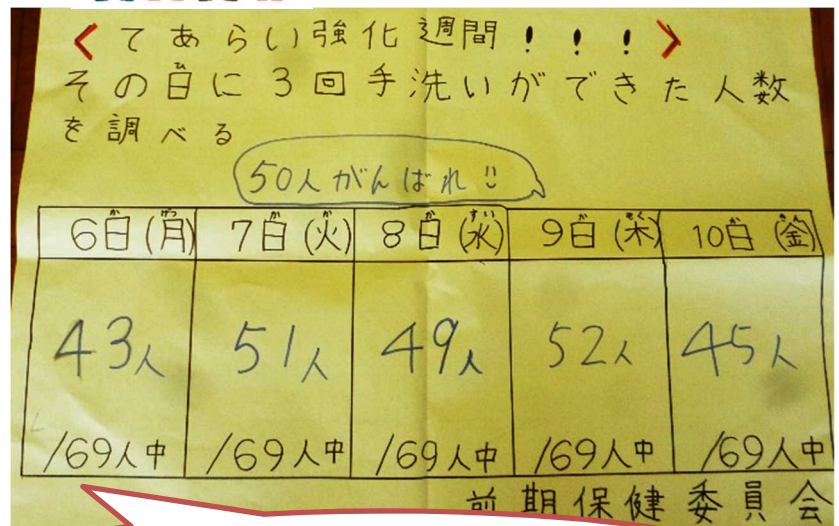 ＜てあらい強化週間！！！＞
その日に3回手洗いができた人数
を調べる
50人がんばれ!!
6日(月) 7日(火) 8日(水) 9日(木) 10日(金)
43人 51人 49人 52人 45人
/69人中 /69人中 /69人中 /69人中 /69人中
前期保健委員会